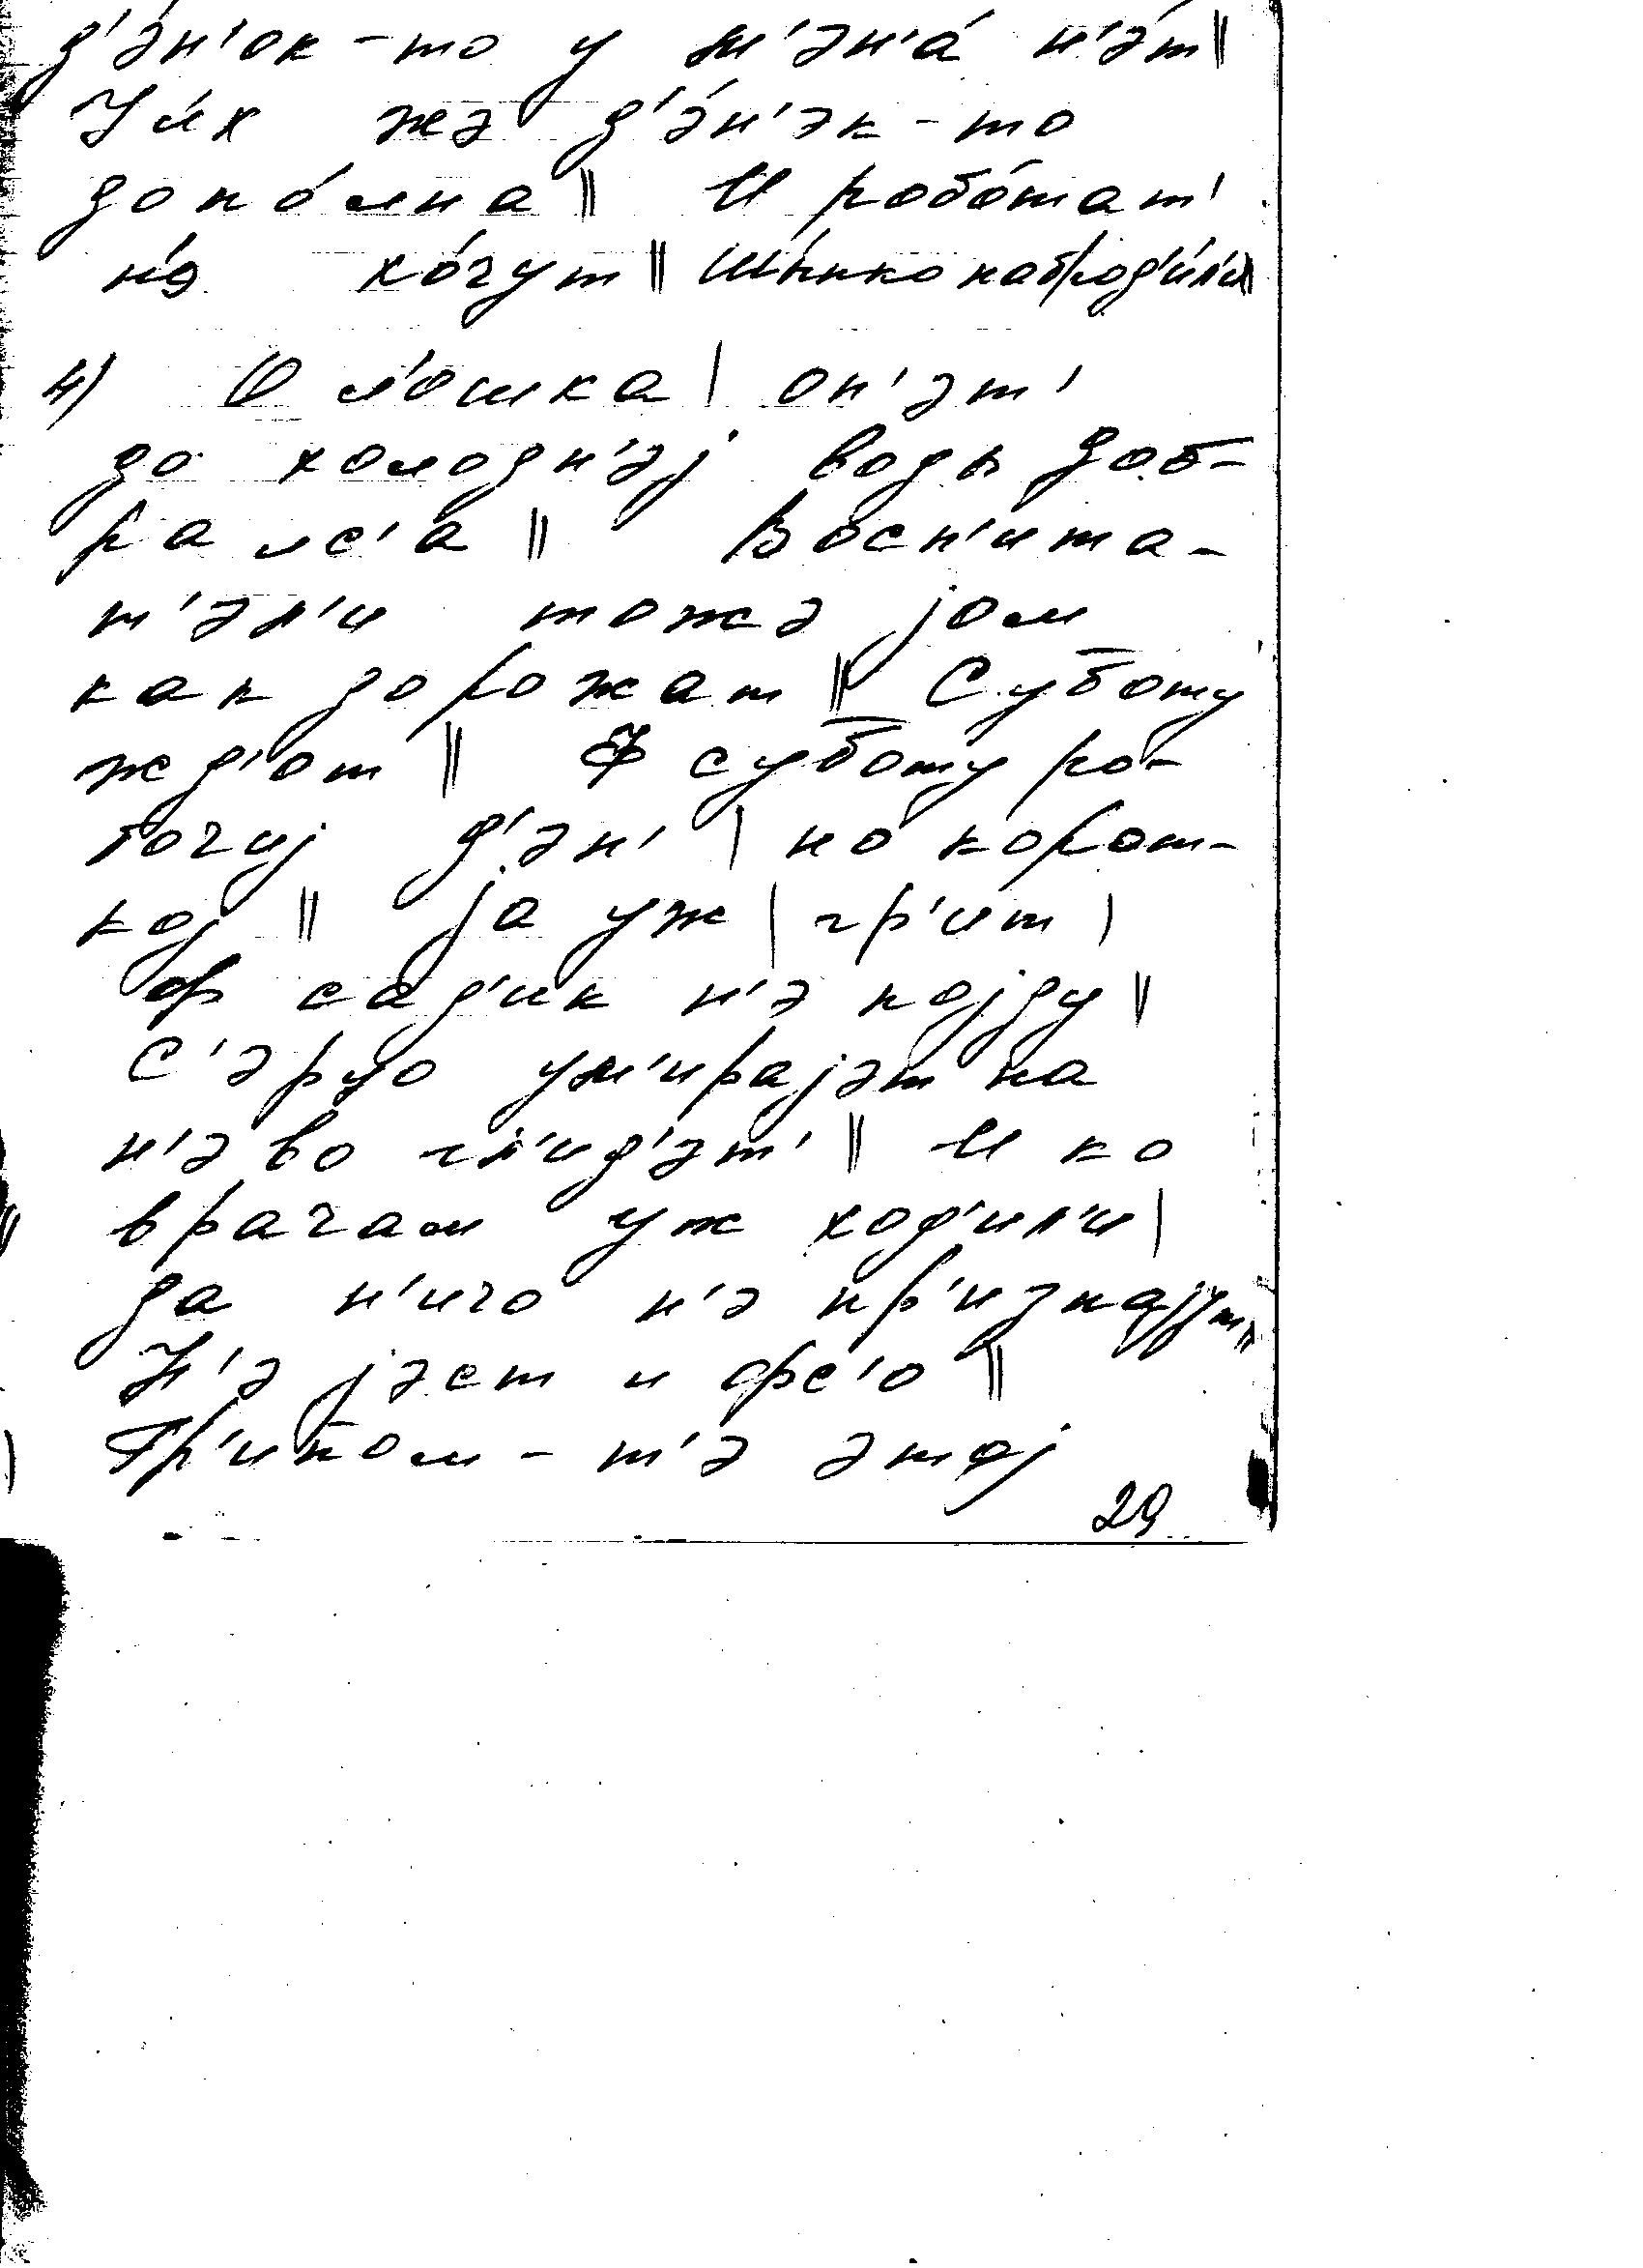 д'э́н'ок-то у м'эн'а́ н'э́т‖
У и́х жэ д'э́н'эк-то
допо́лна‖ И робо́тат'
н'э хо́чут‖
4) Ол'ошка| оп'эт'
до холодн'эј воды доб-
ралс'а‖ Восп'ита-
т'эл'и тожэ јом
как дорожат‖ Суботу
жд'от‖ Ф суботу ро-
бочиј д'эн'| но корот-
кој‖ Ја уж| гр'ит|
ф сад'ик н'э појду‖
С'эрцо ум'ирајэт на
н'эво гл'ид'эт'‖ И ко
врачам уж ход'ил'и|
да н'ичо н'э пр'изнајут‖
Н'э јэст и фс'о‖
Гр'ипом-т'э этој
29